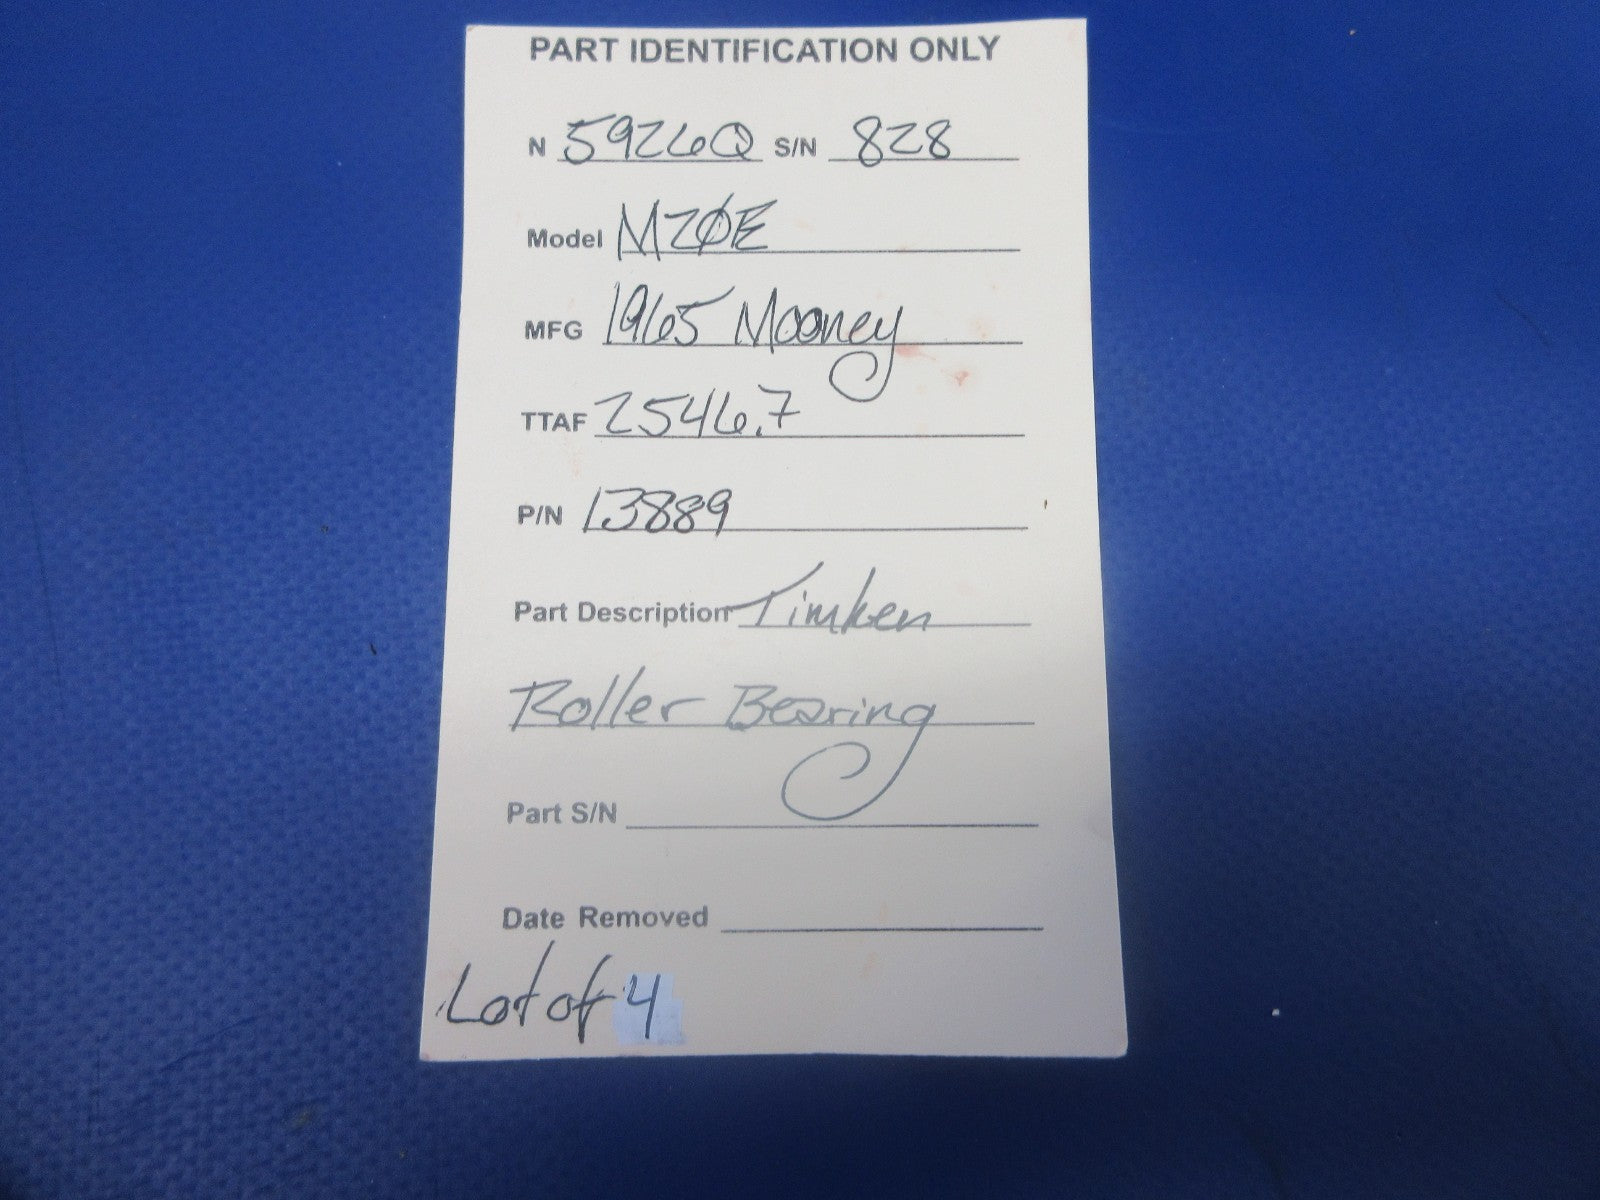 PART IDENTIFICATION ONLY
N 5926Q S/N 828
Model M20E
MFG 1965 Mooney
TTAF 2546.7
P/N 13889
Part Description Timken
Roller Bearing
Part S/N
Date Removed
Lot of 4